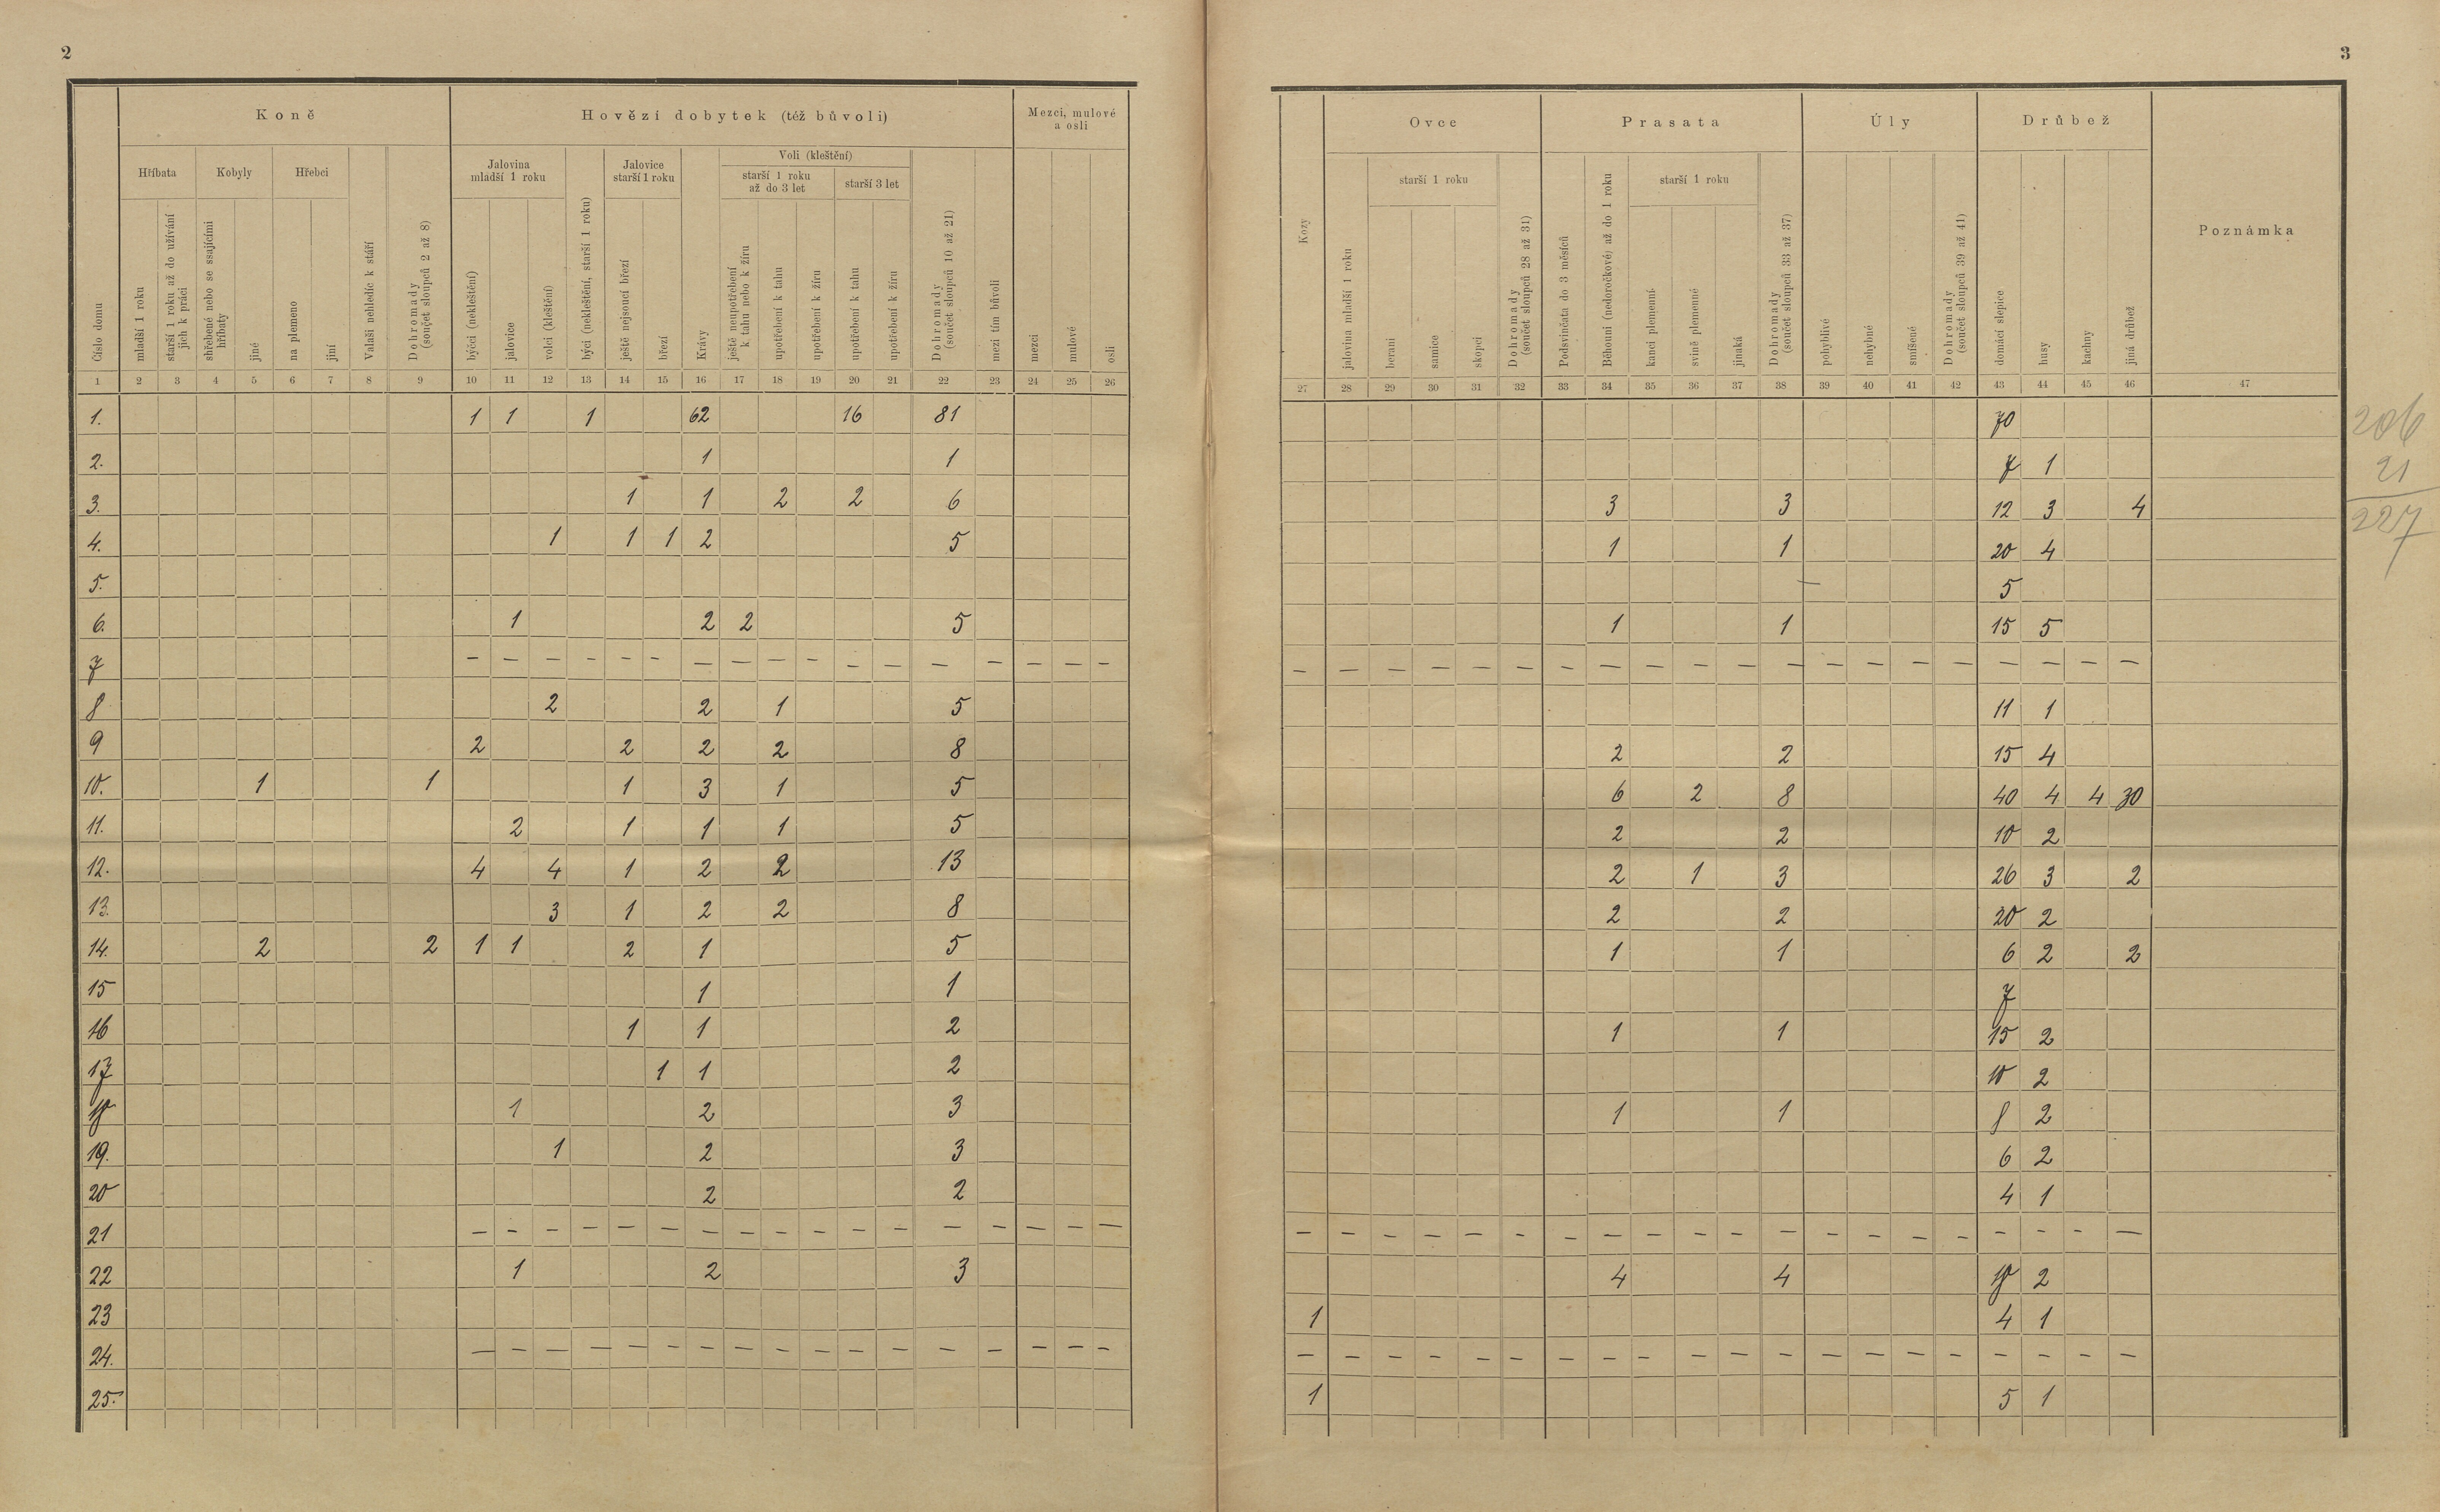 2
3
Koně
Hovězí dobytek (též bůvoli)
Mezci, mulové
a osli
Hříbata
Kobyly
Hřebci
Jalovina
mladší 1 roku
Jalovice
starší 1 roku
Voli (kleštění)
starší 1 roku
až do 3 let
starší 3 let
Číslo domu
mladší 1 roku
starší 1 roku až do užívání
jich k práci
shřebené nebo se ssajícími
hříbaty
jiné
na plemeno
jiní
Valaši nehledíc k stáří
Dohromady
(součet sloupců 2 až 8)
býčci (nekleštění)
jalovice
volci (kleštění)
býci (nekleštění, starší 1 roku)
ještě nejsoucí březí
březí
Krávy
ještě neupotřebení
k tahu nebo k žíru
upotřebení k tahu
upotřebení k žíru
upotřebení k tahu
upotřebení k žíru
Dohromady
(součet sloupců 10 až 21)
mezi tím bůvoli
mezci
mulové
osli
1 2 3 4 5 6 7 8 9 10 11 12 13 14 15 16 17 18 19 20 21 22 23 24 25 26
1. 1 1 1 62 16 81
2. 1 1
3. 1 1 2 2 6
4. 1 1 1 2 5
5.
6. 1 2 2 5
7 – – – – – – – – – – – – – – – – –
8 2 2 1 5
9 2 2 2 2 8
10. 1 1 1 3 1 5
11. 2 1 1 1 5
12. 4 4 1 2 2 13
13. 3 1 2 2 8
14. 2 2 1 1 2 1 5
15 1 1
16 1 1 2
17 1 1 2
18 1 2 3
19. 1 2 3
20 2 2
21 – – – – – – – – – – – – – – – – –
22 1 2 3
23
24. – – – – – – – – – – – – – – – – –
25.
Ovce
Prasata
Úly
Drůbež
Poznámka
starší 1 roku
starší 1 roku
Kozy
jalovina mladší 1 roku
berani
samice
skopci
Dohromady
(součet sloupců 28 až 31)
Podsvinčata do 3 měsíců
Běhouni (nedoročkové) až do 1 roku
kanci plemenní
svině plemenné
jinaká
Dohromady
(součet sloupců 33 až 37)
pohyblivé
nehybné
smíšené
Dohromady
(součet sloupců 39 až 41)
domácí slepice
husy
kachny
jiná drůbež
27 28 29 30 31 32 33 34 35 36 37 38 39 40 41 42 43 44 45 46 47
70
7 1
3 3 12 3 4
1 1 20 4
5
1 1 15 5
– – – – – – – – – – – – – – – – – – – –
11 1
2 2 15 4
6 2 8 40 4 4 30
2 2 10 2
2 1 3 26 3 2
2 2 20 2
1 1 6 2 2
7
1 1 15 2
10 2
1 1 8 2
6 2
4 1
– – – – – – – – – – – – – – – – – – – –
4 4 18 2
1 4 1
– – – – – – – – – – – – – – – – – – – –
1 5 1
206
21
227